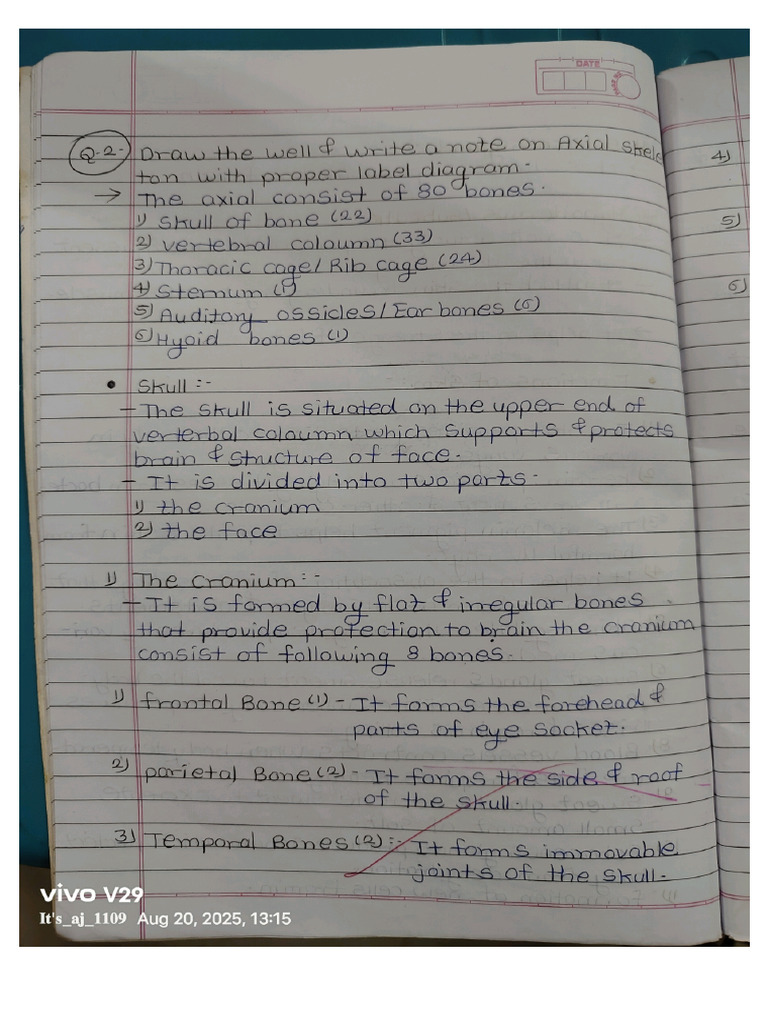 DATE
Q.2. Draw the well & write a note on Axial skele
ton with proper label diagram.
4)
→ The axial consist of 80 bones.
1) Skull of bone (22)
5)
2) vertebral coloumn (33)
3) Thoracic cage/Rib cage (24)
4) Sternum (1)
6)
5) Auditory ossicles/Ear bones (6)
6) Hyoid bones (1)
• Skull :-
- The skull is situated on the upper end of
verterbal coloumn which supports & protects
brain & structure of face.
- It is divided into two parts.
1) the cranium
2) the face
1) The Cranium :-
- It is formed by flat & irregular bones
that provide protection to brain the cranium
consist of following 8 bones.
1) frontal Bone (1) - It forms the forehead &
parts of eye socket.
2) parietal Bone (2) - It forms the side & roof
of the skull.
3) Temporal Bones (2) :- It forms immovable
joints of the skull.
vivo V29
It's_aj_1109 Aug 20, 2025, 13:15